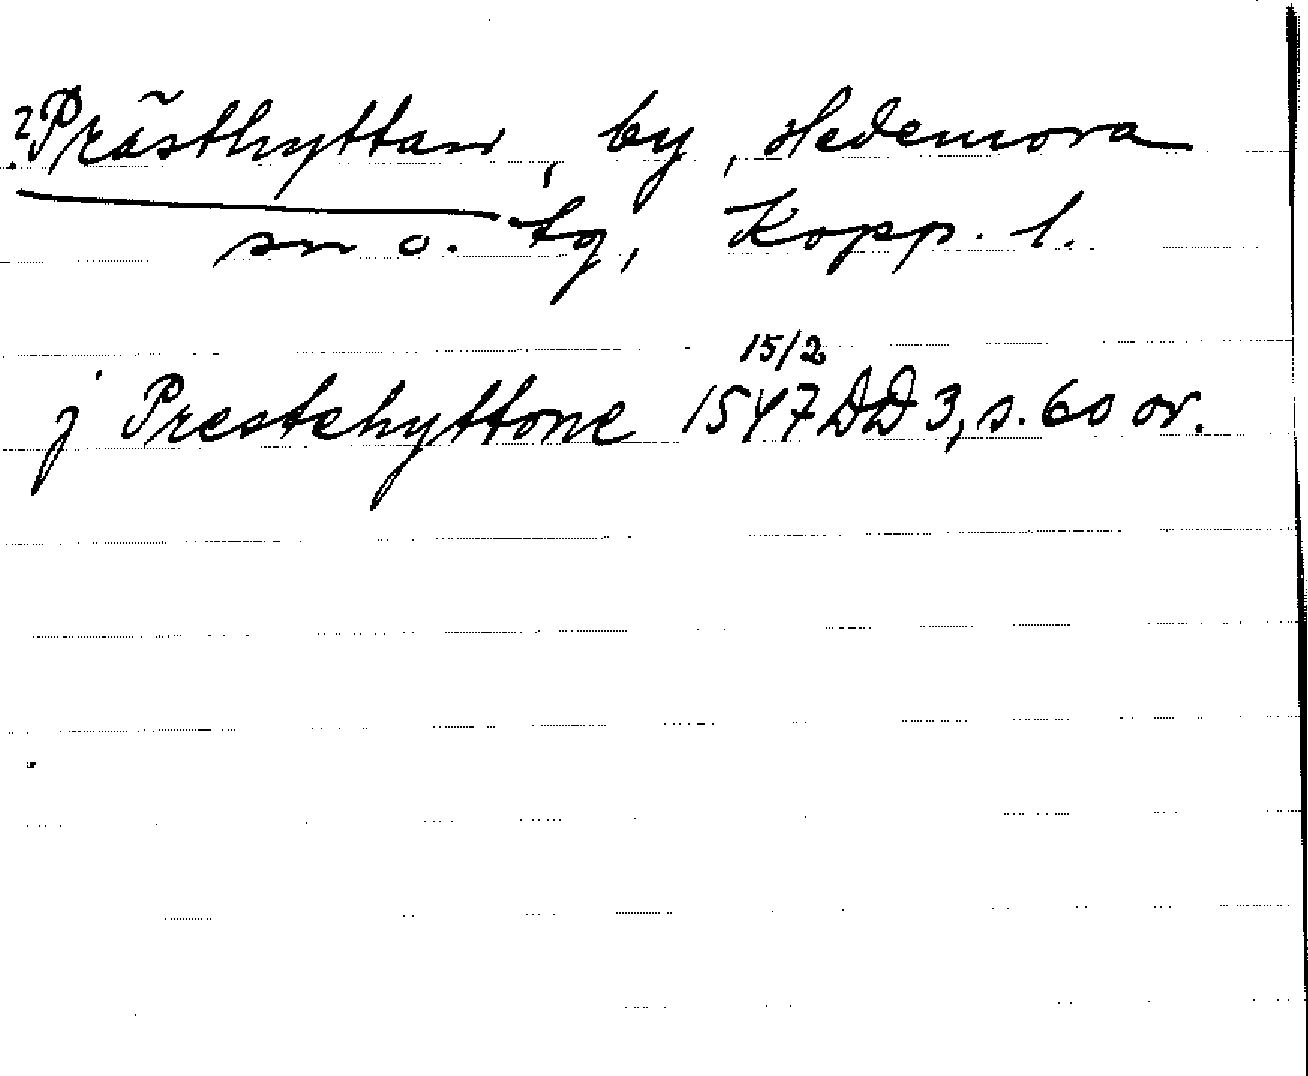 ?Prästhyttan, by, Hedemora
sn o. tg, Kopp. l.
15/2
j Prestehyttone 1547 DD 3, s. 60 or.